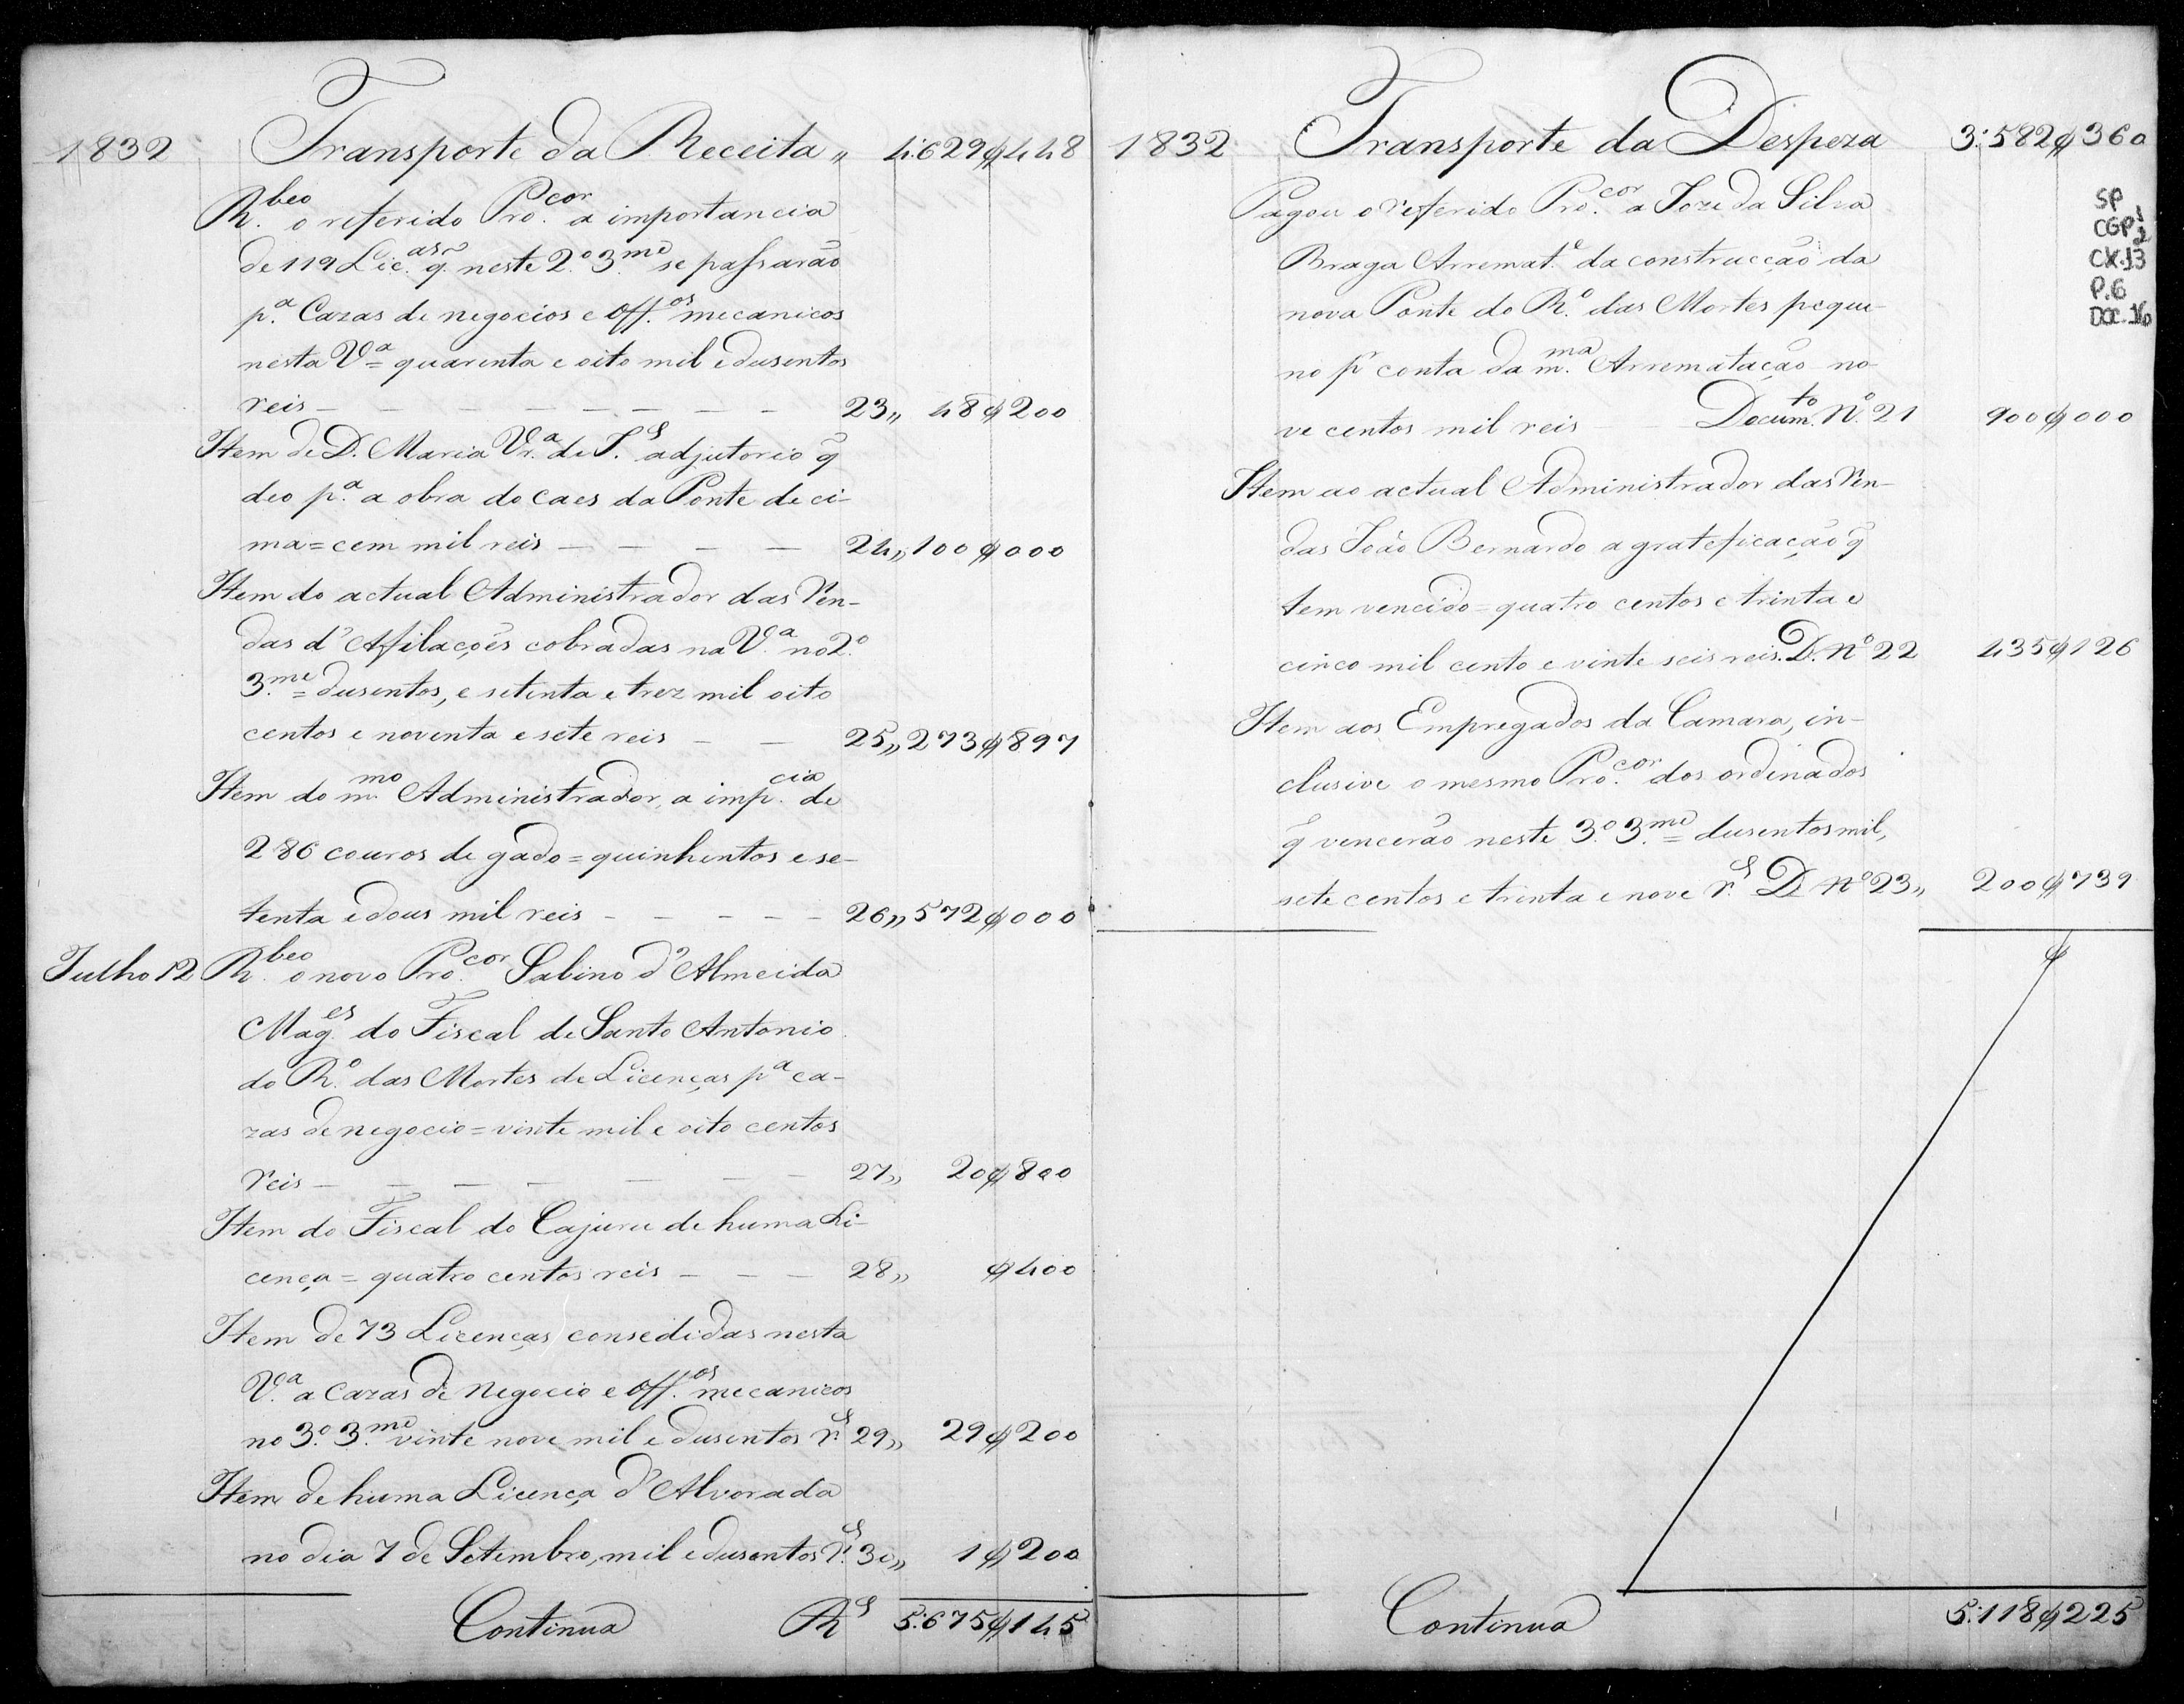 1832 Transporte da Receita „ 4:629$448
R.beo o referido Pro.cor a importancia
de 119 Lic.as q̃ neste 2.º 3.me se passarão
p.a Cazas de negocios e off.os mecanicos
nesta V.a = quarenta e oito mil e dusentos
reis — — — — — — — — 23„ 48$200
Item de D. Maria Vr.a de J.s adjutorio q̃
deo p.a a obra do caes da Ponte de ci-
ma = cem mil reis — — — — 24„ 100$000
Item do actual Administrador das Ren-
das d'Afilações cobradas na V.a no 2.º
3.me = dusentos, e setenta e trez mil oito
centos e noventa e sete reis — — 25„ 273$897
Item do m.mo Administrador, a imp.cia de
286 couros de gado = quinhentos e se-
tenta e dous mil reis — — — — — 26„ 572$000
Julho 12 R.beo o novo Pro.cor Sabino d'Almeida
Mag.es do Fiscal de Santo Antonio
do R.º das Mortes de Licenças p.a ca-
zas de negocio = vinte mil e oito centos
reis — — — — — — — 27„ 20$800
Item do Fiscal do Cajuru de huma Li-
cença = quatro centos reis — — — 28„ $400
Item de 73 Licenças consedidas nesta
V.a a cazas de negocio e off.os mecanicos
no 3.º 3.me vinte nove mil e dusentos r.s 29„ 29$200
Item de huma Licença d'Alvorada
no dia 7 de Setembro, mil e dusentos r.s 30„ 1$200
Continua R.s 5:675$145
1832 Transporte da Despeza 3:582$360
SP
CGP 1
2
CX.13
P.6
DOC.16
Pagou o referido Pro.cor a Joze da Silva
Braga Arremat.e da construcção da
nova Ponte do R.º das Mortes peque-
no p.r conta da m.ma Arrematação no-
ve centos mil reis Docum.to N.º 21 900$000
Item ao actual Administrador das Ren-
das João Bernardo a grateficação q̃
tem vencido = quatro centos e trinta e
cinco mil cento e vinte seis reis. D. Nº 22 435$126
Item aos Empregados da Camara, in-
clusive o mesmo Pro.cor dos ordinados
q̃ vencerão neste 3.º 3.me = dusentos mil,
sete centos e trinta e nove r.s D. Nº 23„ 200$739
$
Continua 5:118$225